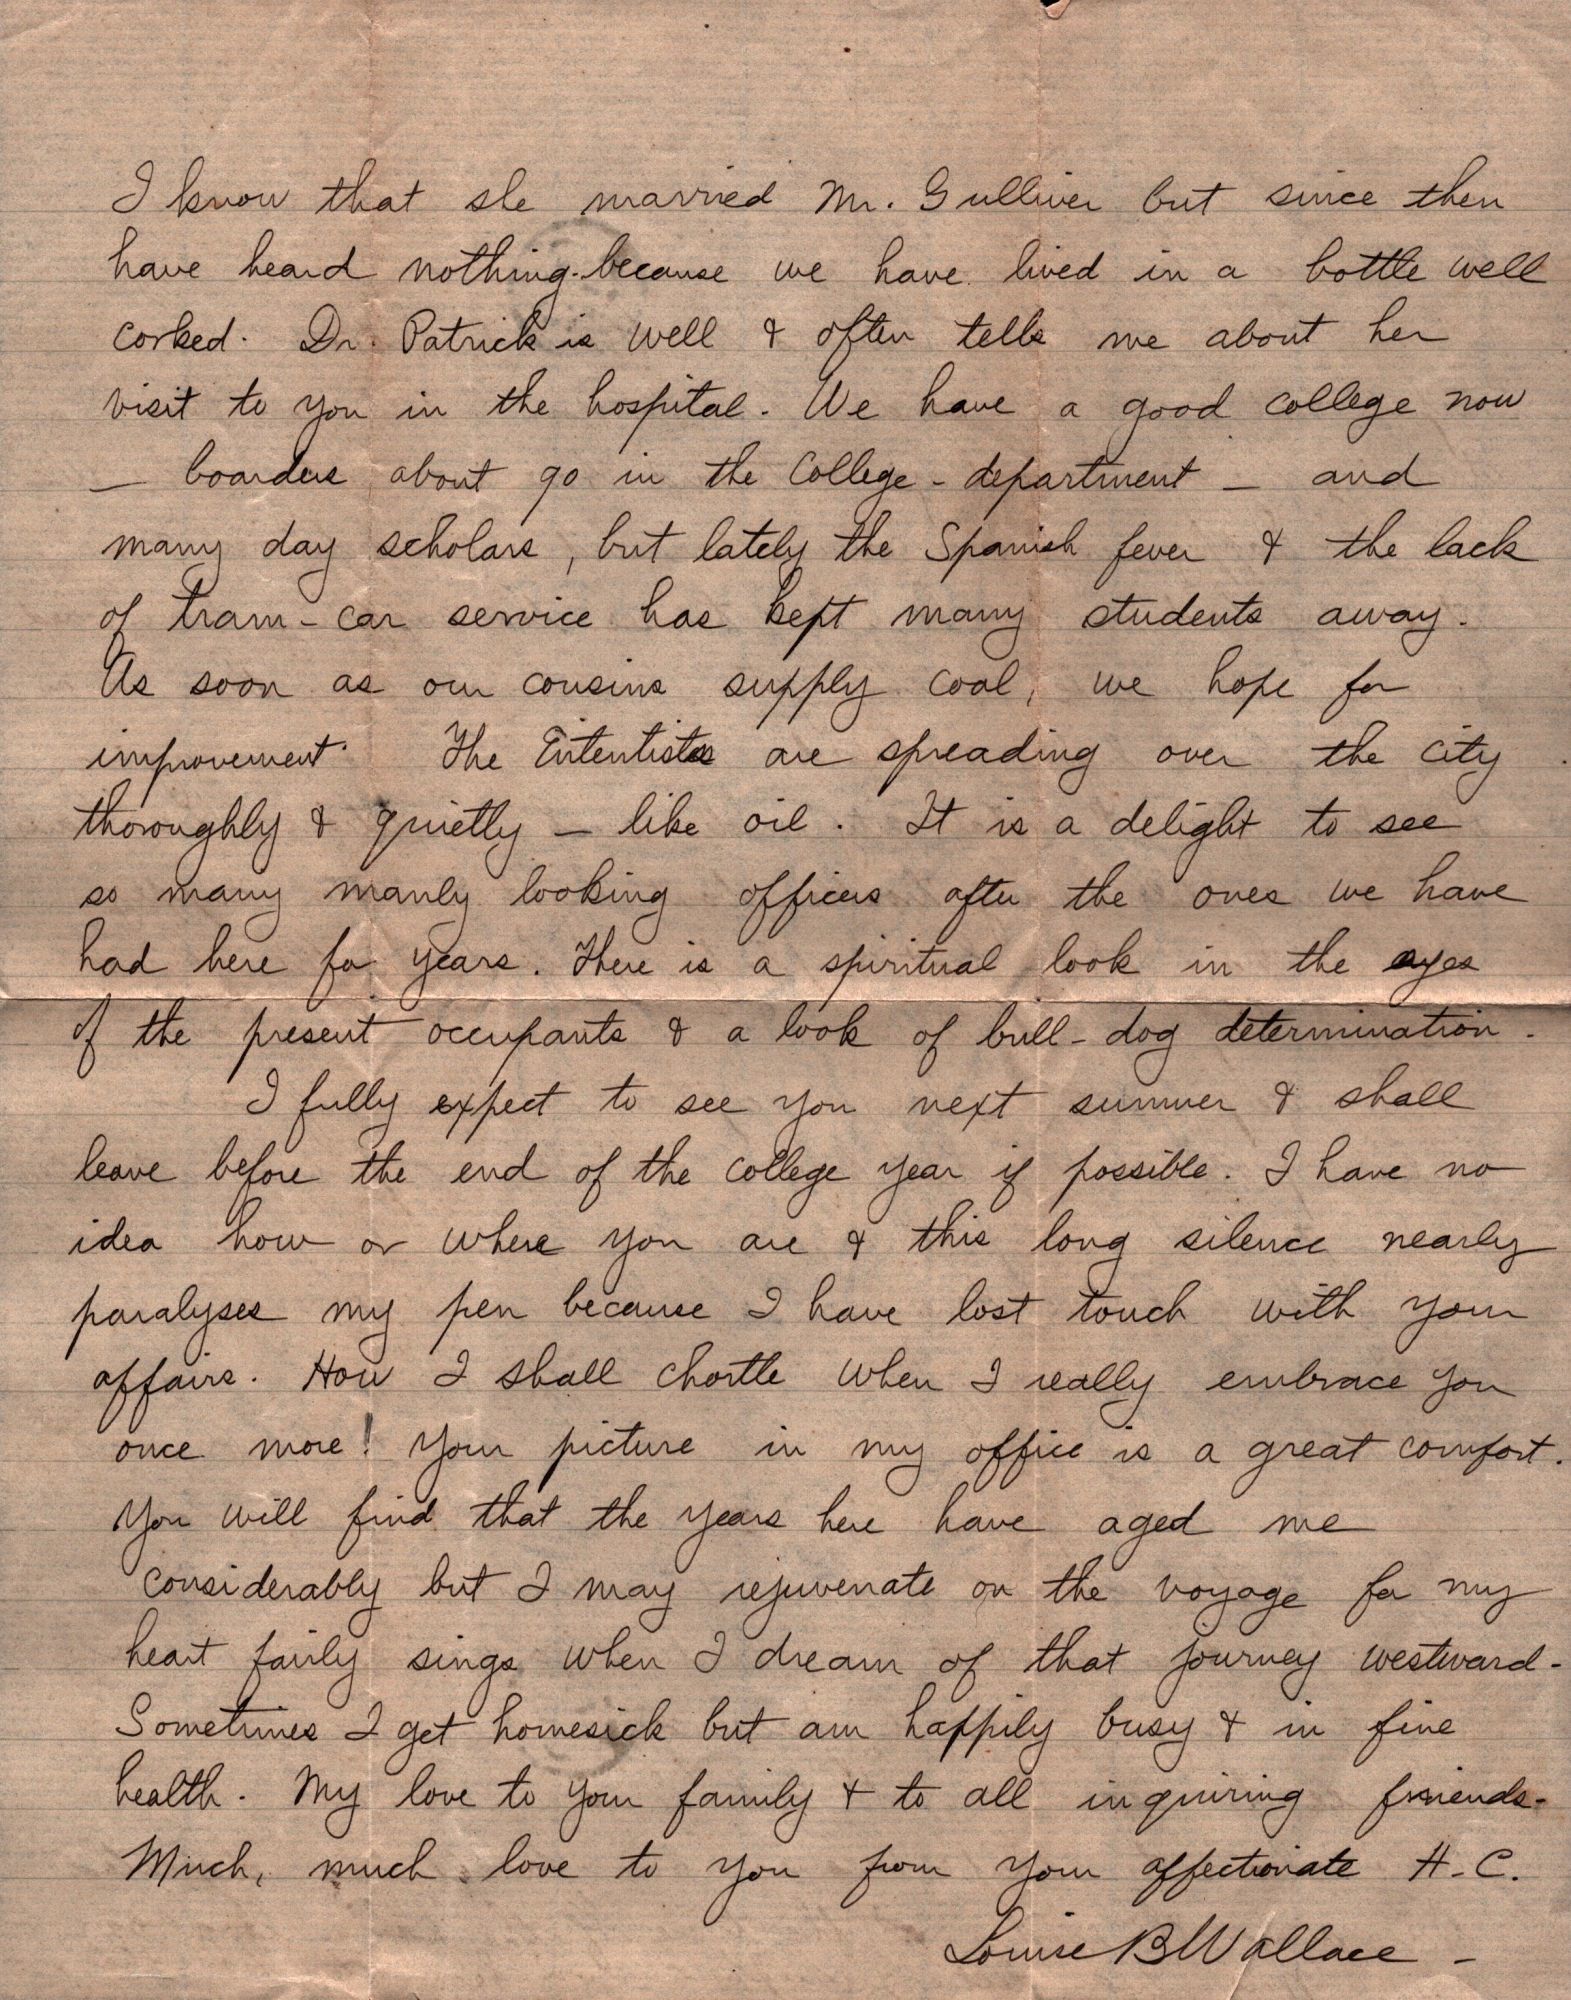 I know that she married Mr. Gulliver but since then
have heard nothing because we have lived in a bottle well
corked. Dr. Patrick is well & often tells me about her
visit to you in the hospital. We have a good college now
— boarders about 90 in the College-department — and
many day scholars, but lately the Spanish fever & the lack
of tram-car service has kept many students away.
As soon as our cousins supply coal, we hope for
improvement. The Ententists are spreading over the city
thoroughly & quietly — like oil. It is a delight to see
so many manly looking officers after the ones we have
had here for years. There is a spiritual look in the eyes
of the present occupants & a look of bull-dog determination.
I fully expect to see you next summer & shall
leave before the end of the college year if possible. I have no
idea how or where you are & this long silence nearly
paralyses my pen because I have lost touch with your
affairs. How I shall chortle when I really embrace you
once more! Your picture in my office is a great comfort.
You will find that the years here have aged me
considerably but I may rejuvenate on the voyage for my
heart fairly sings when I dream of that journey westward-
Sometimes I get homesick but am happily busy & in fine
health. My love to your family & to all inquiring friends-
Much, much love to you from your affectionate H-C.
Louise B Wallace -